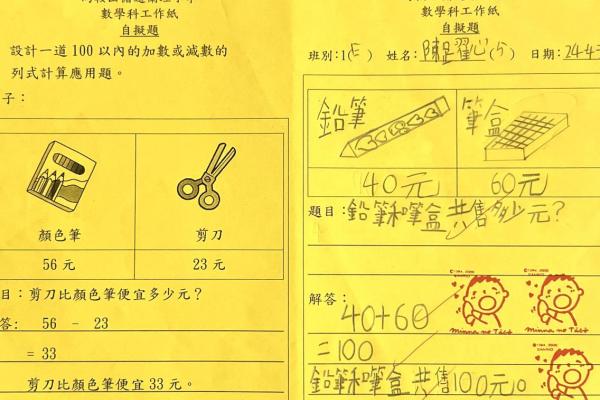 數學科工作紙
自擬題
設計一道 100 以內的加數或減數的
列式計算應用題。
子：
顏色筆 剪刀
56 元 23 元
目：剪刀比顏色筆便宜多少元？
答: 56 － 23
= 33
剪刀比顏色筆便宜 33 元。
數學科工作紙
自擬題
班別:1(E) 姓名: (5) 日期:24-4
鉛筆 筆盒
40元 60元
題目：鉛筆和筆盒共售多少元？
解答：
40+60
=100
鉛筆和筆盒共售100元。
Minna no Tabo
Minna no Tabo